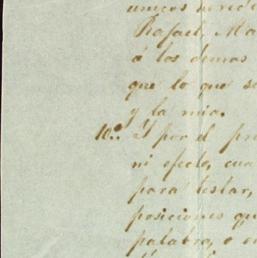 unicos hered
Rafael, Ma
á los demas
que lo que se
y la mia.
10.. Y por el pre
ni efecto, cua
para testar,
posiciones qu
palabra, o e